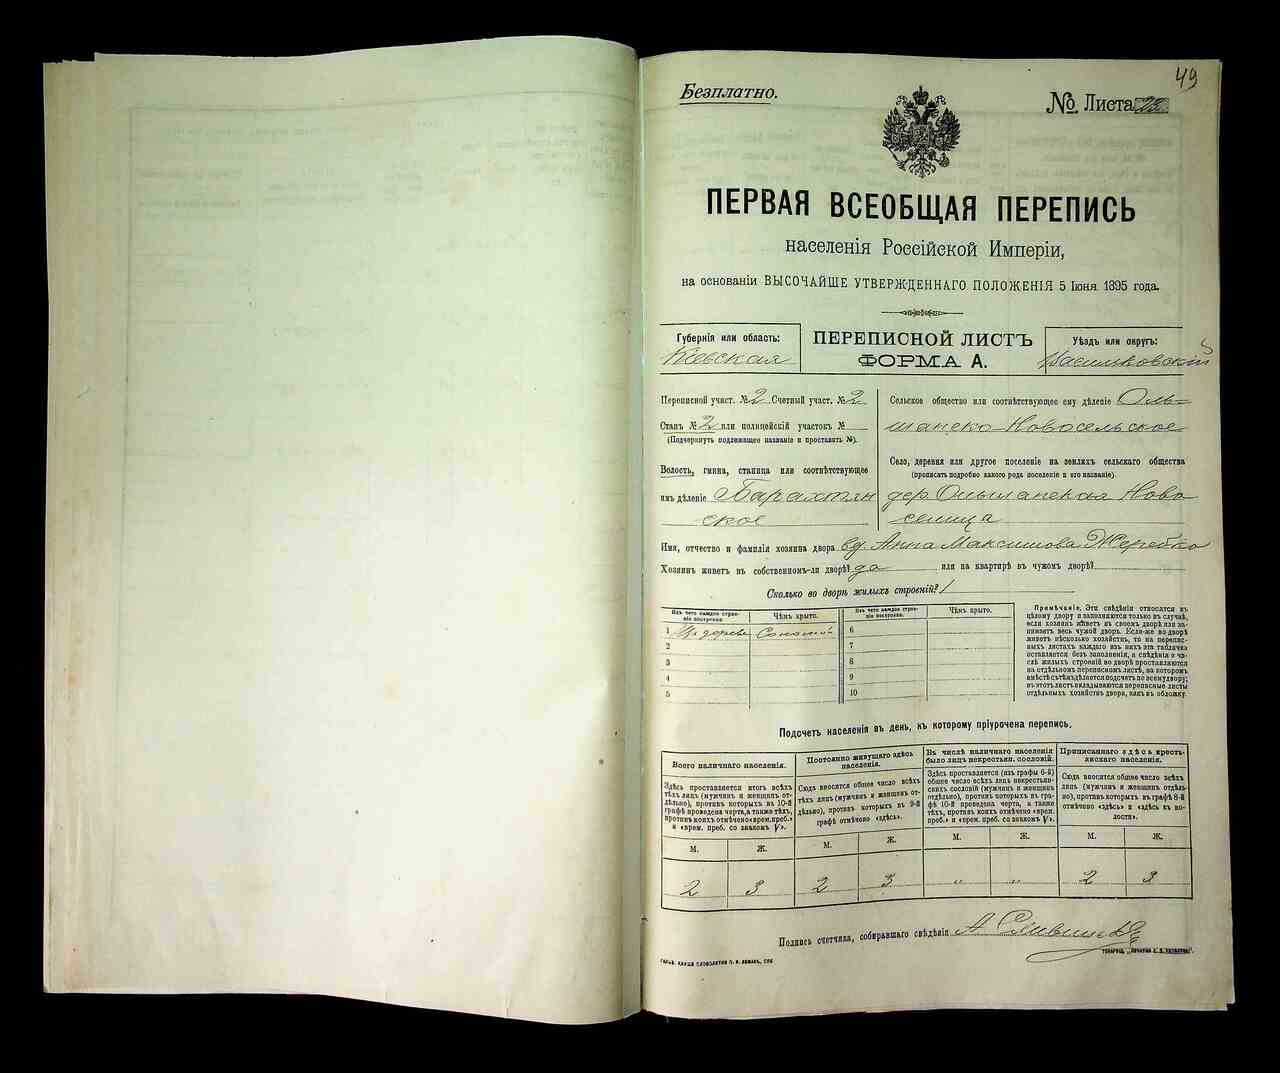 49
Безплатно.
№ Листа 23
ПЕРВАЯ ВСЕОБЩАЯ ПЕРЕПИСЬ
населенія Россійской Имперіи,
на основаніи ВЫСОЧАЙШЕ УТВЕРЖДЕННАГО ПОЛОЖЕНІЯ 5 Іюня 1895 года.
Губернія или область:
Кіевская
ПЕРЕПИСНОЙ ЛИСТЪ
ФОРМА А.
Уѣздъ или округъ:
Васильковскій
Переписной участ. № 2 Счетный участ. № 2
Станъ № 2 или полицейскій участокъ №
(Подчеркнуть подлежащее названіе и проставить №).
Волость, гмина, станица или соотвѣтствующее
имъ дѣленіе Барахтян
ское
Сельское общество или соотвѣтствующее ему дѣленіе Оль=
шанско-Новосельское
Село, деревня или другое поселеніе на земляхъ сельскаго общества
(прописать подробно какого рода поселеніе и его названіе).
дер. Ольшанская Ново
селица
Имя, отчество и фамилія хозяина двора вд. Анна Максимова Жеребко
Хозяинъ живетъ въ собственномъ-ли дворѣ? да или на квартирѣ въ чужомъ дворѣ?
Сколько во дворѣ жилыхъ строеній? 1
Изъ чего каждое строе-
ніе построено.
Чѣмъ крыто.
1 Из дерева Соломой
2
3
4
5
Изъ чего каждое строе-
ніе построено.
Чѣмъ крыто.
6
7
8
9
10
Примѣчаніе. Эти свѣдѣнія относятся къ
цѣлому двору и заполняются только въ случаѣ,
если хозяинъ живетъ въ своемъ дворѣ или за-
нимаетъ весь чужой дворъ. Если-же во дворѣ
живетъ нѣсколько хозяйствъ, то на перепис-
ныхъ листахъ каждаго изъ нихъ эта табличка
оставляется безъ заполненія, а свѣдѣнія о чи-
слѣ жилыхъ строеній во дворѣ проставляются
на отдѣльномъ переписномъ листѣ, на которомъ
вмѣстѣ съ тѣмъ дѣлается подсчетъ по всему двору;
въ этотъ листъ вкладываются переписные листы
отдѣльныхъ хозяйствъ двора, какъ въ обложку.
Подсчетъ населенія въ день, къ которому пріурочена перепись.
Всего наличнаго населенія.
Здѣсь проставляется итогъ всѣхъ
тѣхъ лицъ (мужчинъ и женщинъ от-
дѣльно), противъ которыхъ въ 10-й
графѣ проведена черта, а также тѣхъ,
противъ коихъ отмѣчено «врем. преб.»
и «врем. преб. со знакомъ V».
М. Ж.
2 3
Постоянно живущаго здѣсь
населенія.
Сюда вносится общее число всѣхъ
тѣхъ лицъ (мужчинъ и женщинъ от-
дѣльно), противъ которыхъ въ 9-й
графѣ отмѣчено «здѣсь».
М. Ж.
2 3
Въ числѣ наличнаго населенія
было лицъ некрестьян. сословій.
Здѣсь проставляется (изъ графы 6-й)
общее число всѣхъ лицъ некрестьян-
скихъ сословій (мужчинъ и женщинъ
отдѣльно), противъ которыхъ въ гра-
фѣ 10-й проведена черта, а также
тѣхъ, противъ коихъ отмѣчено «врем.
преб.» и «врем. преб. со знакомъ V».
М. Ж.
" "
Приписаннаго здѣсь кресть-
янскаго населенія.
Сюда вносится общее число всѣхъ
лицъ (мужчинъ и женщинъ отдѣль-
но), противъ которыхъ въ графѣ 8-й
отмѣчено «здѣсь» и «здѣсь въ во-
лости».
М. Ж.
2 3
Подпись счетчика, собиравшаго свѣдѣнія А.